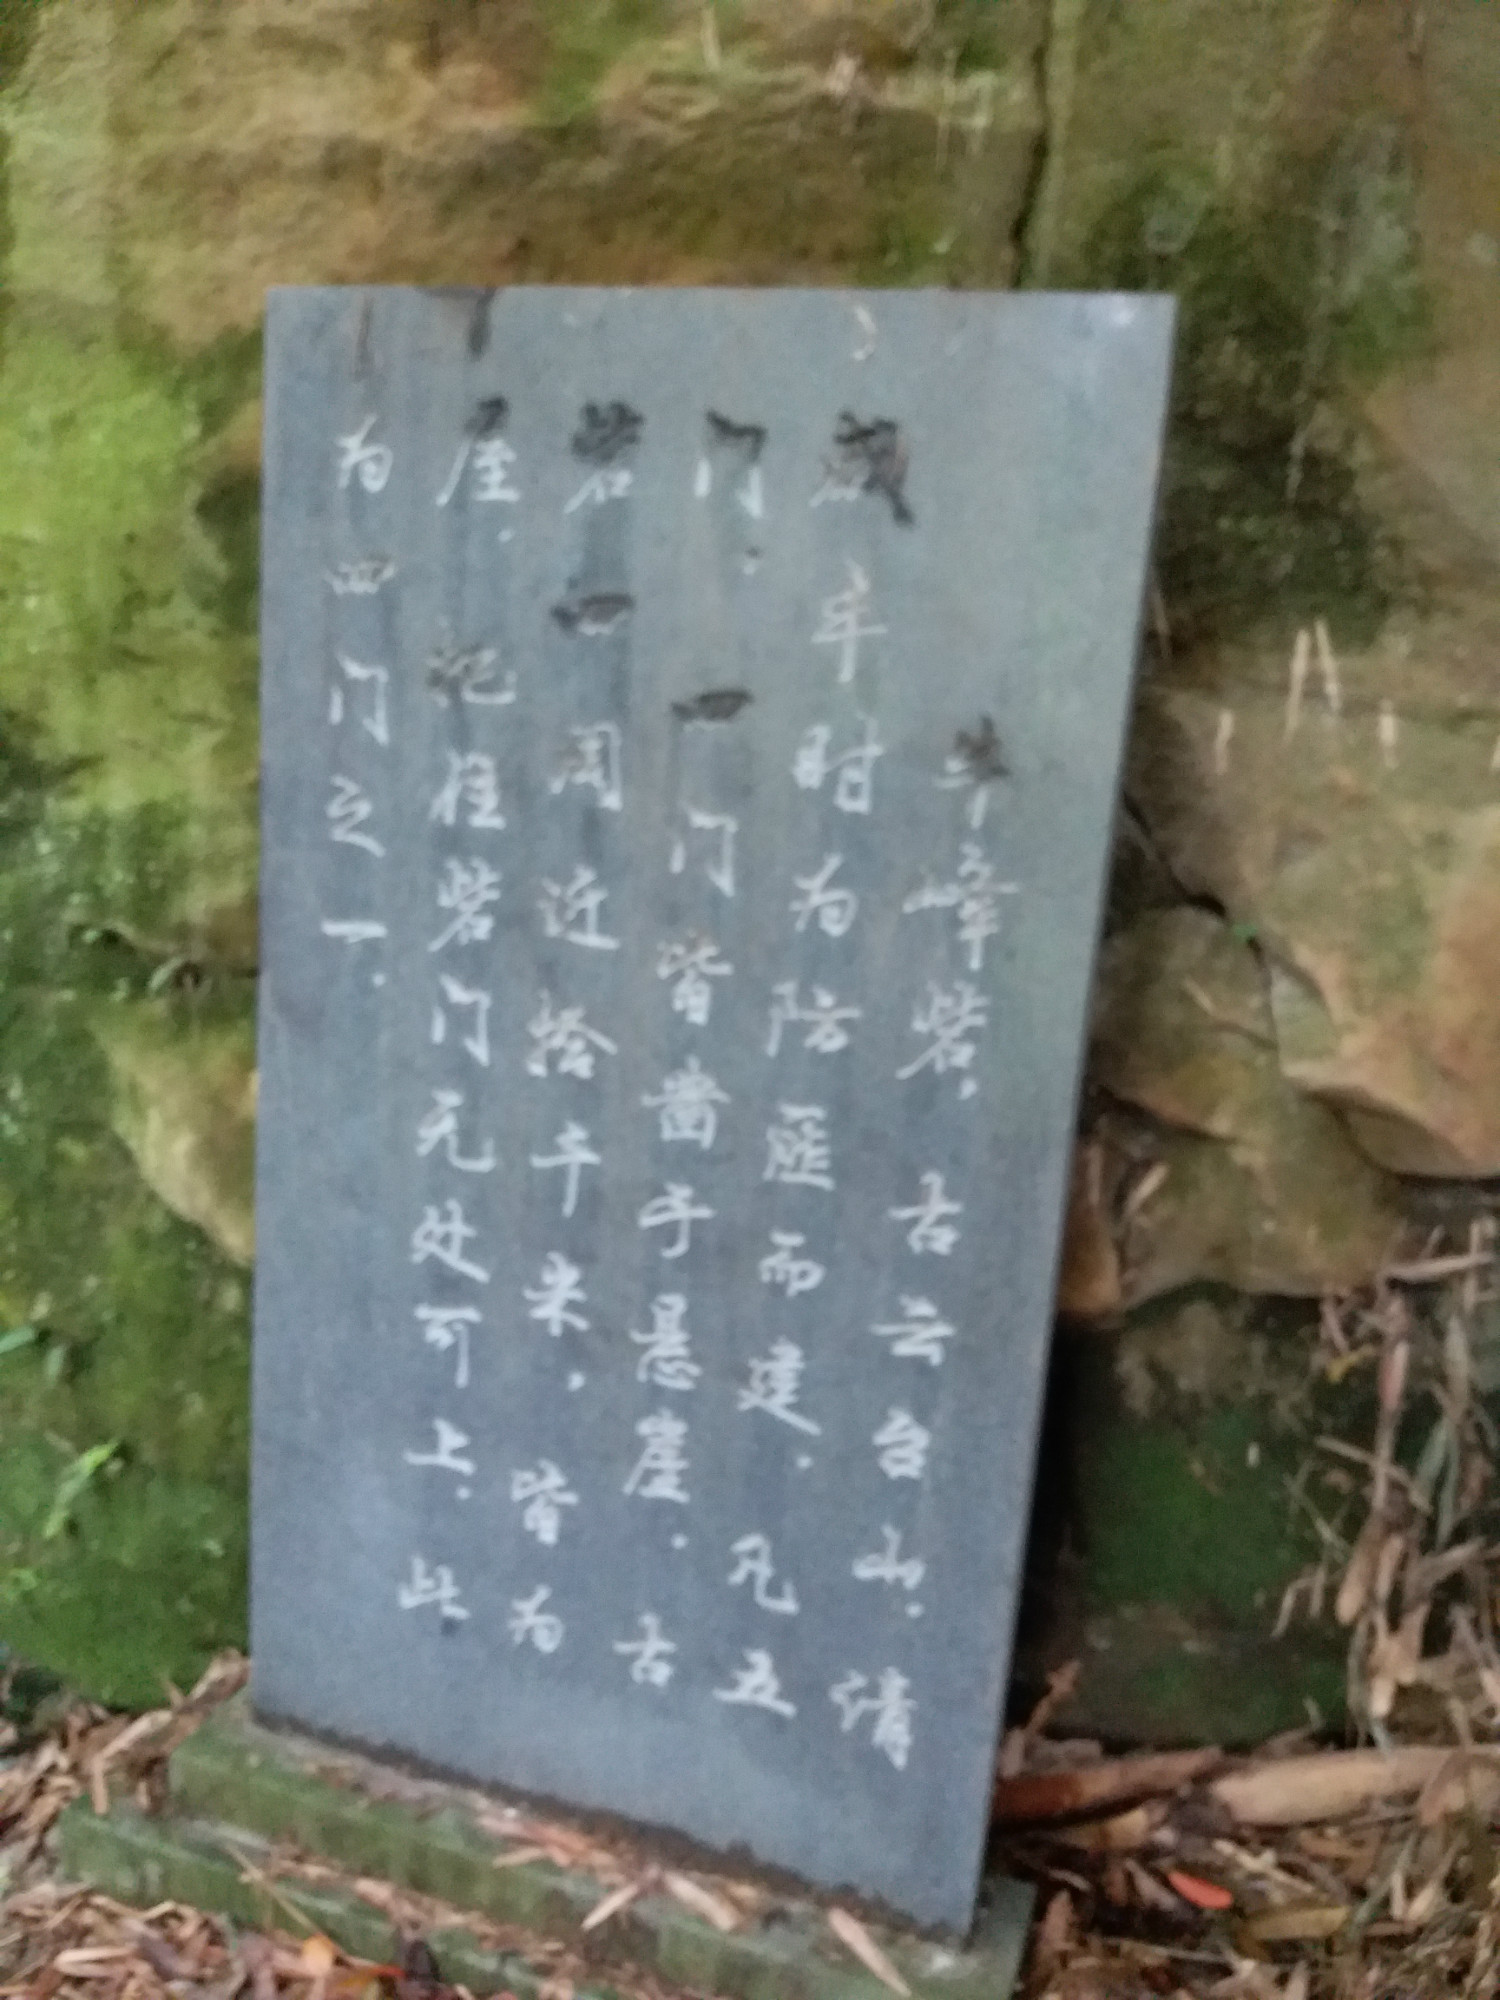 牛峰砦，古云台山。清
咸丰时为防匪而建。凡五
门。四门皆凿于悬崖。古
砦四周近拾千米，皆为
崖。圮柱砦门无处可上。此
为四门之一。